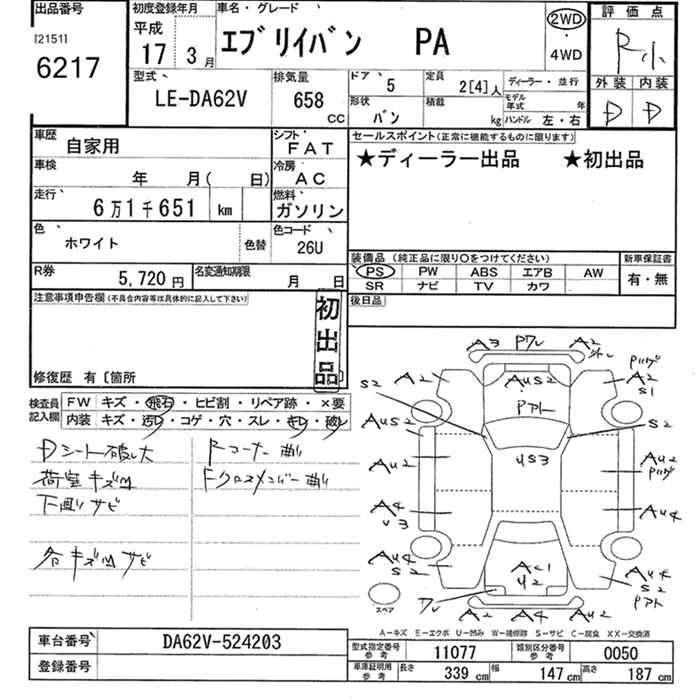 出品番号
[2151]
6217
初度登録年月
平成
17 3月
車名・グレード
エブリイバン PA
2WD
・
4WD
評価点
R小
外装 内装
D D
型式
LE-DA62V
排気量
658
CC
ドア 5
定員 2[4]人
ディーラー・並行
形状 バン
積載 kg
モデル年式 年
ハンドル 左・右
車歴 自家用
シフト FAT
セールスポイント(正常に機能するものに限ります)
★ディーラー出品 ★初出品
車検 年 月( 日)
冷房 AC
走行 6万1千651 km
燃料 ガソリン
色 ホワイト 色替
色コード 26U
装備品(純正品に限り○をつけてください)
新車保証書
PS PW ABS エアB AW
SR ナビ TV カワ
有・無
R券 5,720円
名変通知期限 月 日
後日品
注意事項申告欄(不具合内容等は具体的に記入して下さい)
初出品
修復歴 有〔箇所
検査員記入欄
FW キズ・飛石・ヒビ割・リペア跡・×要
内装 キズ・汚レ・コゲ・穴・スレ・キレ・破レ
Dシート破レ大 Rコーナー曲リ
荷室キズ凹 Fクロスメンバー曲リ
下回リサビ
各キズ凹サビ
A3 Pワレ A2
A2 AUS2 A2
S2 S1
Pアト
AUS2 US3 S2
AU2 AU2
A4 AU4
U3
AU4 AC1 AU4
S2 U2 S2
Pアト
スペア
A2 A4 AU2
A-キズ E-エクボ U-凹み W-補修跡 S-サビ C-腐食 XX-交換済
車台番号 DA62V-524203
登録番号
型式指定番号 参考 11077
類別区分番号 参考 0050
車庫証明用 参考 長さ 339cm 幅 147cm 高さ 187cm